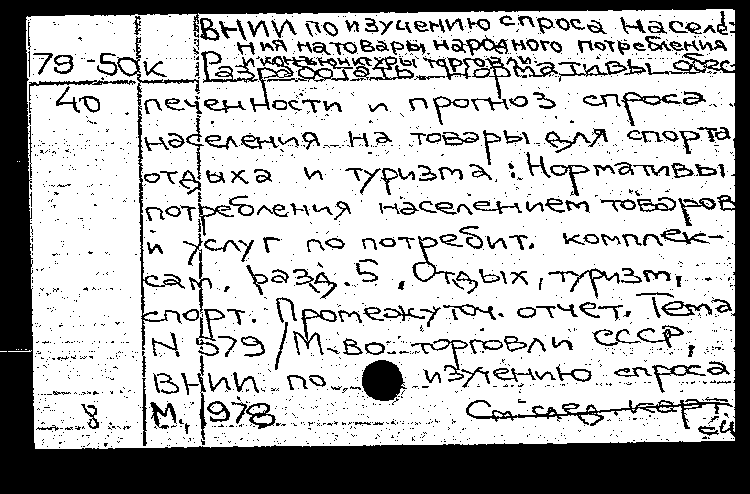 ВНИИ по изучению спроса населе-
ния на товары народного потребления
и конъюнктуры торговли
79-50к Разработать нормативы обес
40 печенности и прогноз спроса
населения на товары для спорта
отдыха и туризма: Нормативы
потребления населением товаров
и услуг по потребит. комплек-
сам, разд. 5, Отдых, туризм,
спорт. Промежуточ. отчет. Тема
N 579/М-во торговли СССР,
ВНИИ по изучению спроса
8 М., 1978 См. след. карт.